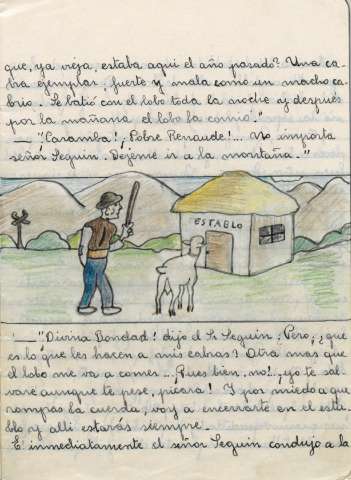 que, ya vieja, estaba aquí el año pasado? Una ca-
bra ejemplar, fuerte y mala como un macho ca-
brío. Se batió con el lobo toda la noche y después
por la mañana el lobo la comió."
— "¡Caramba! ¡Pobre Renaude!... No importa
señor Seguin. Déjeme ir a la montaña."
ESTABLO
— "¡Divina Bondad! dijo el Sr Seguin. Pero, ¿que
es lo que les hacen a mis cabras? Otra mas que
el lobo me va a comer... ¡Pues bien, no!, ¡yo te sal-
varé aunque te pese, pícara! Y por miedo a que
rompas la cuerda, voy a encerrarte en el esta-
blo y allí estarás siempre.
E inmediatamente el señor Seguin condujo a la